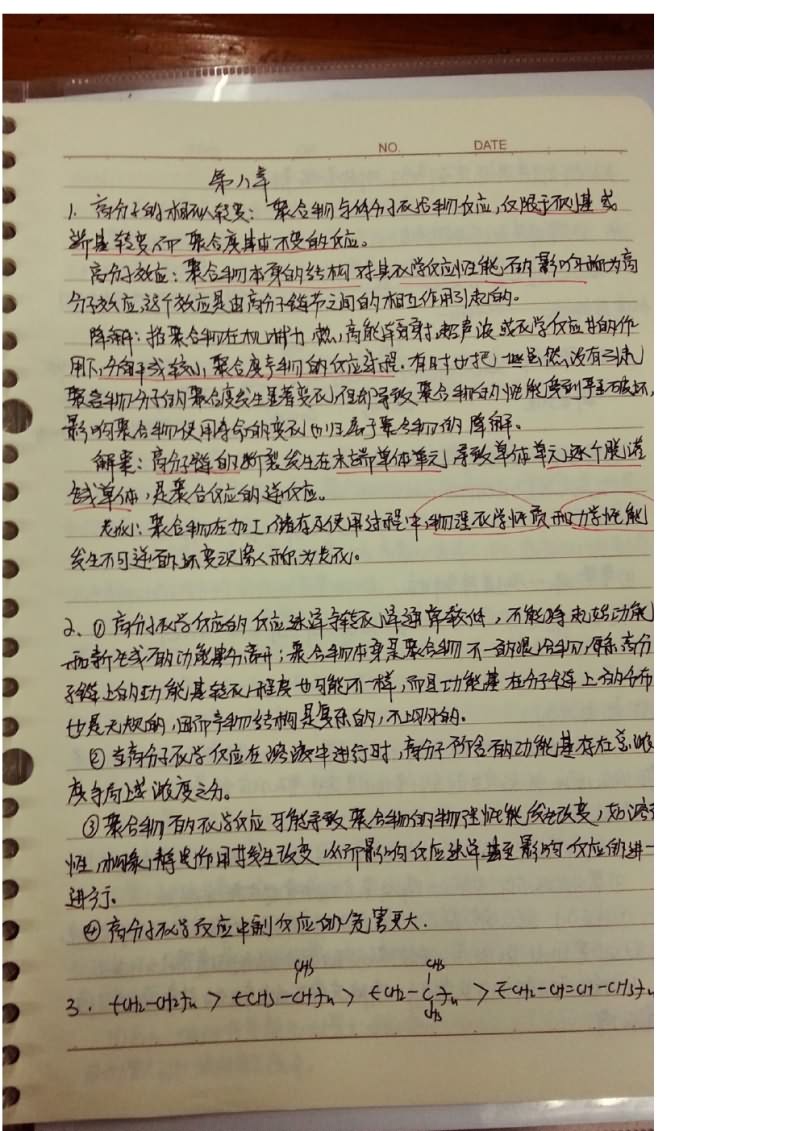 NO. DATE
第八章
1. 高分子的相似转变：聚合物与低分子化合物反应，仅限于侧基或
端基转变而聚合度基本不变的反应。
高分子效应：聚合物本身的结构对其化学反应性能的影响称为高
分子效应，这个效应是由高分子链节之间的相互作用引起的。
降解：指聚合物在机械力，热，高能辐射，超声波或化学反应等的作
用下，分解成较小聚合度产物的反应过程。有时也把一些虽然没有引起
聚合物分子的聚合度发生显著变化，但却导致聚合物的性能受到严重破坏，
影响聚合物使用寿命的变化也归属于聚合物的降解。
解聚：高分子链的断裂发生在末端单体单元，导致单体单元逐个脱落
单体，是聚合反应的逆反应。
老化：聚合物在加工，储存及使用过程中，物理化学性质和力学性能
发生不可逆的坏变现象称为老化。
2. ① 高分子化学反应的反应速率与转化率通常较低，不能将起始功能
和新生成的功能分离开；聚合物本身是聚合物不一的混合物，每条高分
子链上的功能基转化程度也可能不一样，而且功能基在分子链上的分布
也是无规的，因而产物结构是复杂的，不均匀的。
② 当高分子化学反应在溶液中进行时，高分子所含有的功能基存在总浓
度与局部浓度之分。
③ 聚合物的化学反应可能导致聚合物的物理性能发生改变，如溶
性，构象，静电作用等发生改变，从而影响反应速率甚至影响反应的进一
进行。
④ 高分子化学反应中副反应的危害更大.
CH3 CH3
3. -(CH2-CH2)n > -(CH3-CH)n > -(CH2-C)n > -(CH2-CH=CH-CH3)n
CH3